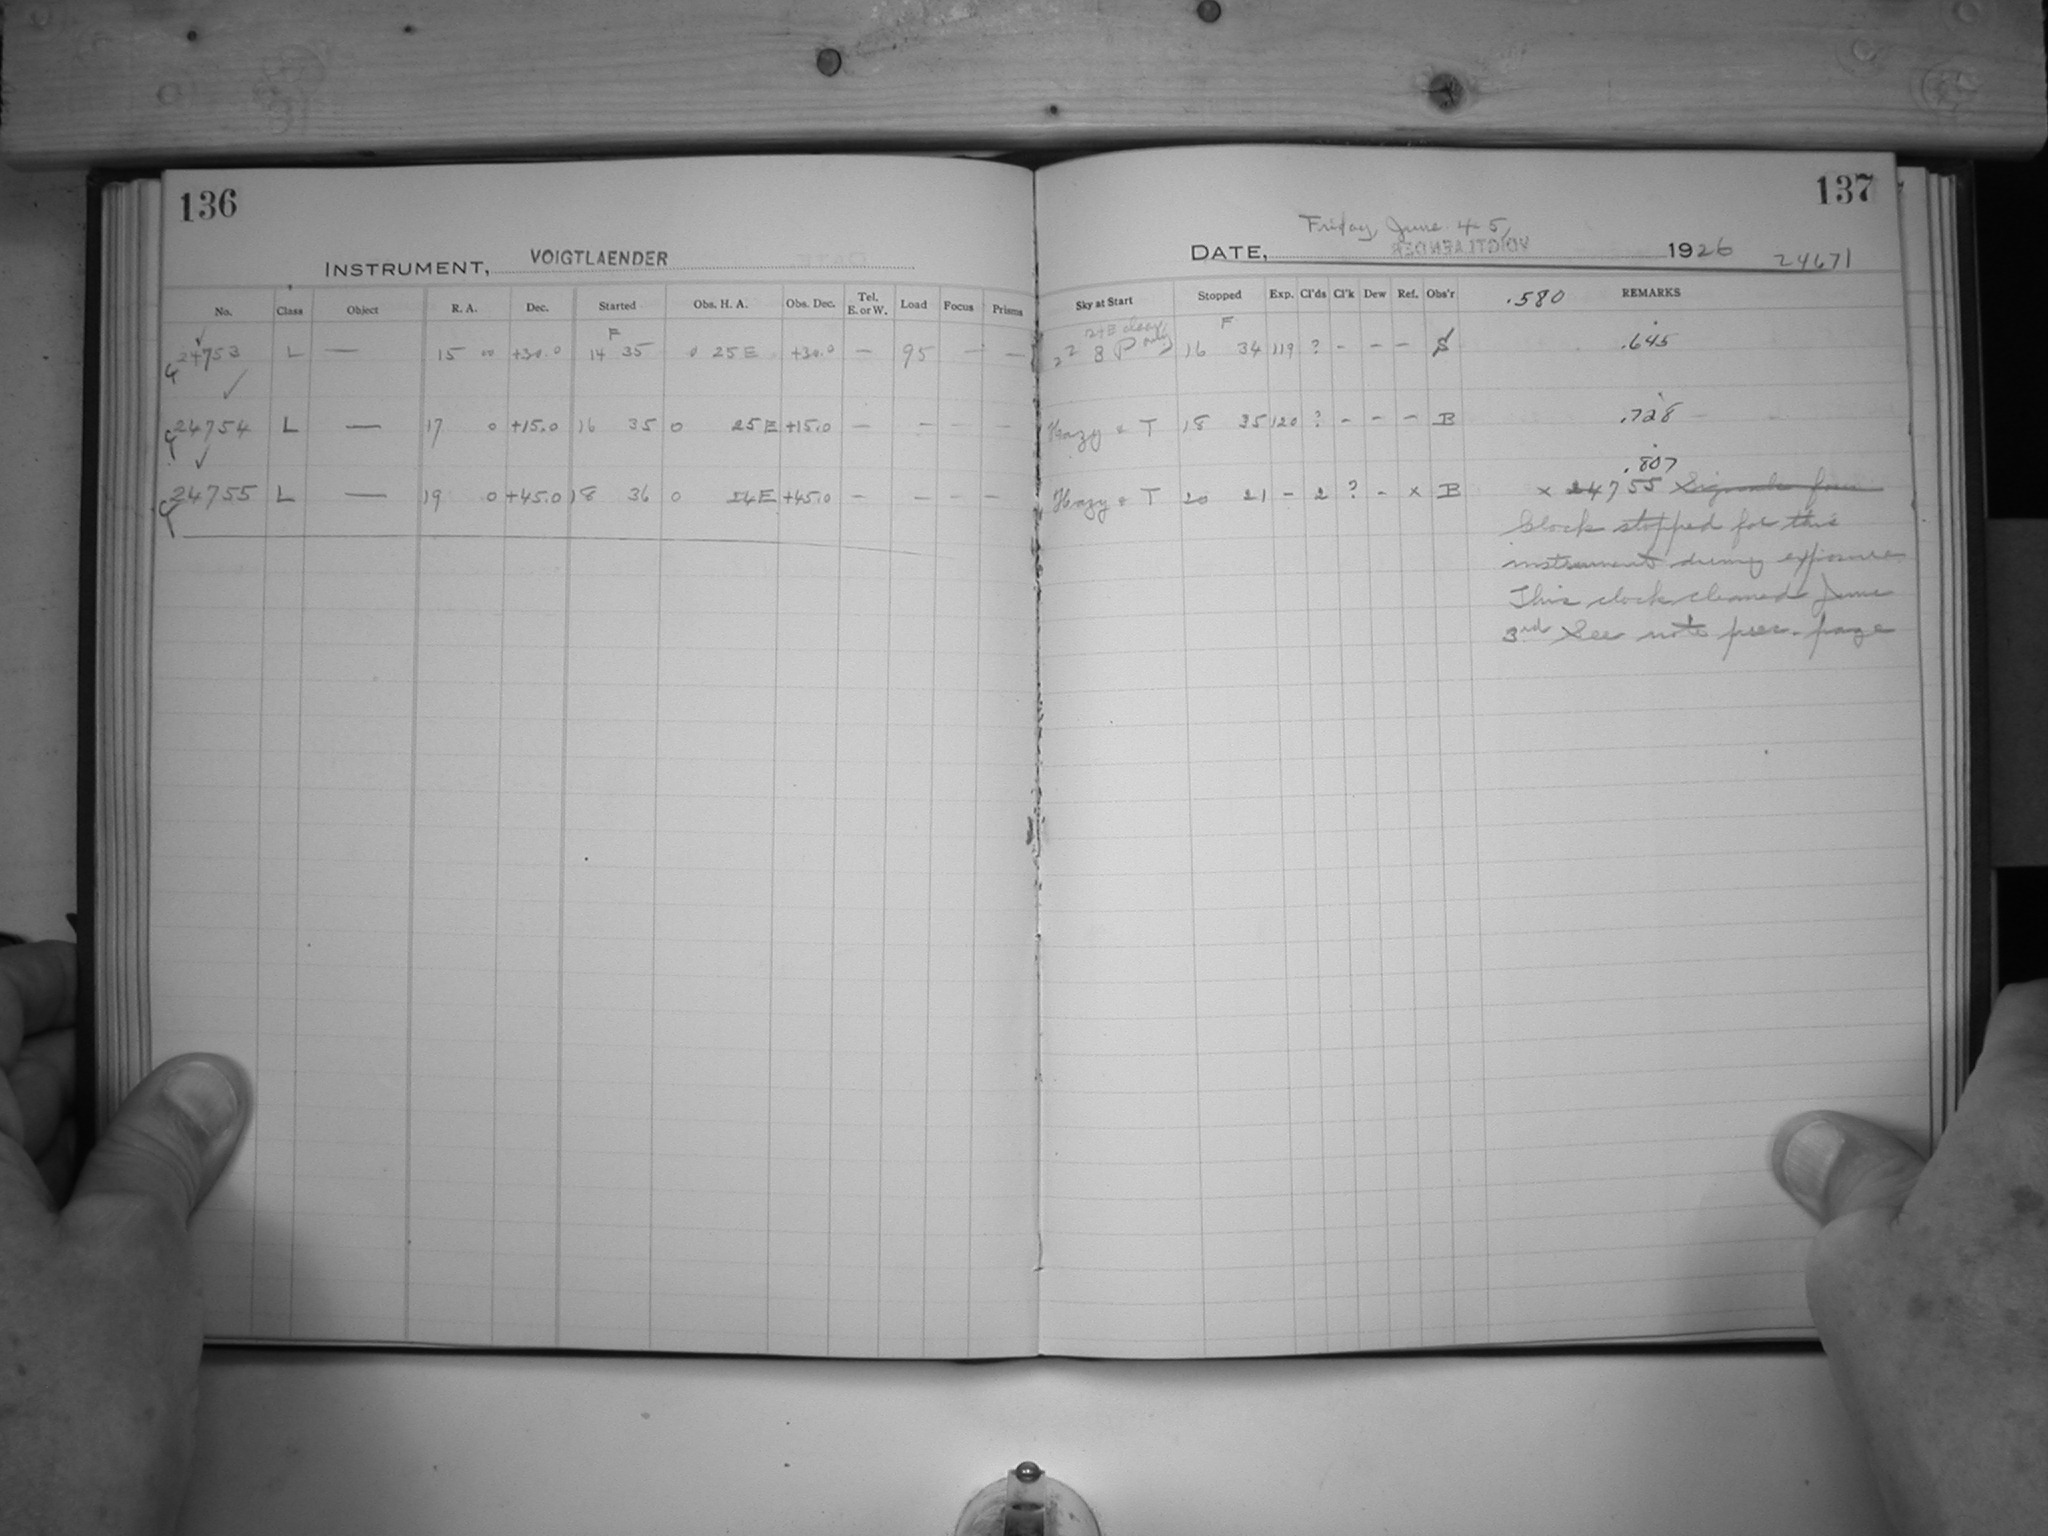 136
INSTRUMENT, VOIGTLAENDER
No. Class Object R. A. Dec. Started Obs. H. A. Obs. Dec. Tel. E. or W. Load Focus Prisms
F
24753 L — 15 00 +30.0 14 35 0 25 E +30.0 — 95 — —
24754 L — 17 0 +15.0 16 35 0 25 E +15.0 — — — —
24755 L — 19 0 +45.0 18 36 0 24 E +45.0 — — — —
137
Friday, June 4-5,
DATE, VOIGTLAENDER 1926 24671
Sky at Start Stopped Exp. Cl'ds Cl'k Dew Ref. Obs'r .580 REMARKS
F
8 P 16 34 119 ? - - - S .645
Hazy & T 18 35 120 ? - - - B .728
.807
Hazy & T 20 21 - 2 ? - x B x 24755 Signals from
Clock stopped for this
instrument during exposure.
This clock cleaned June
3rd See note prec. page